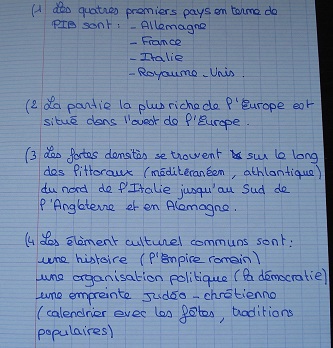 (1 Les quatres premiers pays en terme de
PIB sont : - Allemagne
- France
- Italie
- Royaume-Unis.
(2 La partie la plus riche de l'Europe est
situé dans l'ouest de l'Europe.
(3 Les fortes densités se trouvent sur le long
des littoraux (méditéranéen, athlantique)
du nord de l'Italie jusqu'au Sud de
l'Angleterre et en Alemagne.
(4 Les élément culturel communs sont :
une histoire (l'Empire romain)
une organisation politique (la démocratie)
une empreinte judéo-chrétienne
(calendrier avec les fêtes, traditions
populaires)